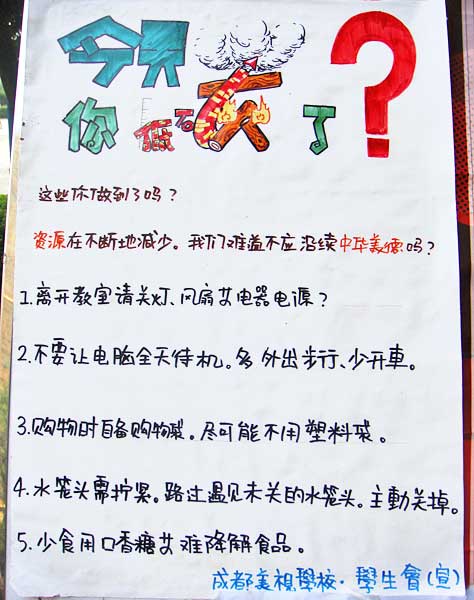 今天
你低碳了?
这些你做到了吗?
资源在不断地减少。我们难道不应沿续中华美德吗?
1.离开教室请关灯、风扇艾电器电源?
2.不要让电脑全天待机。多外出步行、少开車。
3.购物时自备购物袋。尽可能不用塑料袋。
4.水笼头需拧紧。路过遇见未关的水笼头。主動关掉。
5.少食用口香糖艾难降解食品。
成都美視學校·學生會(宣)